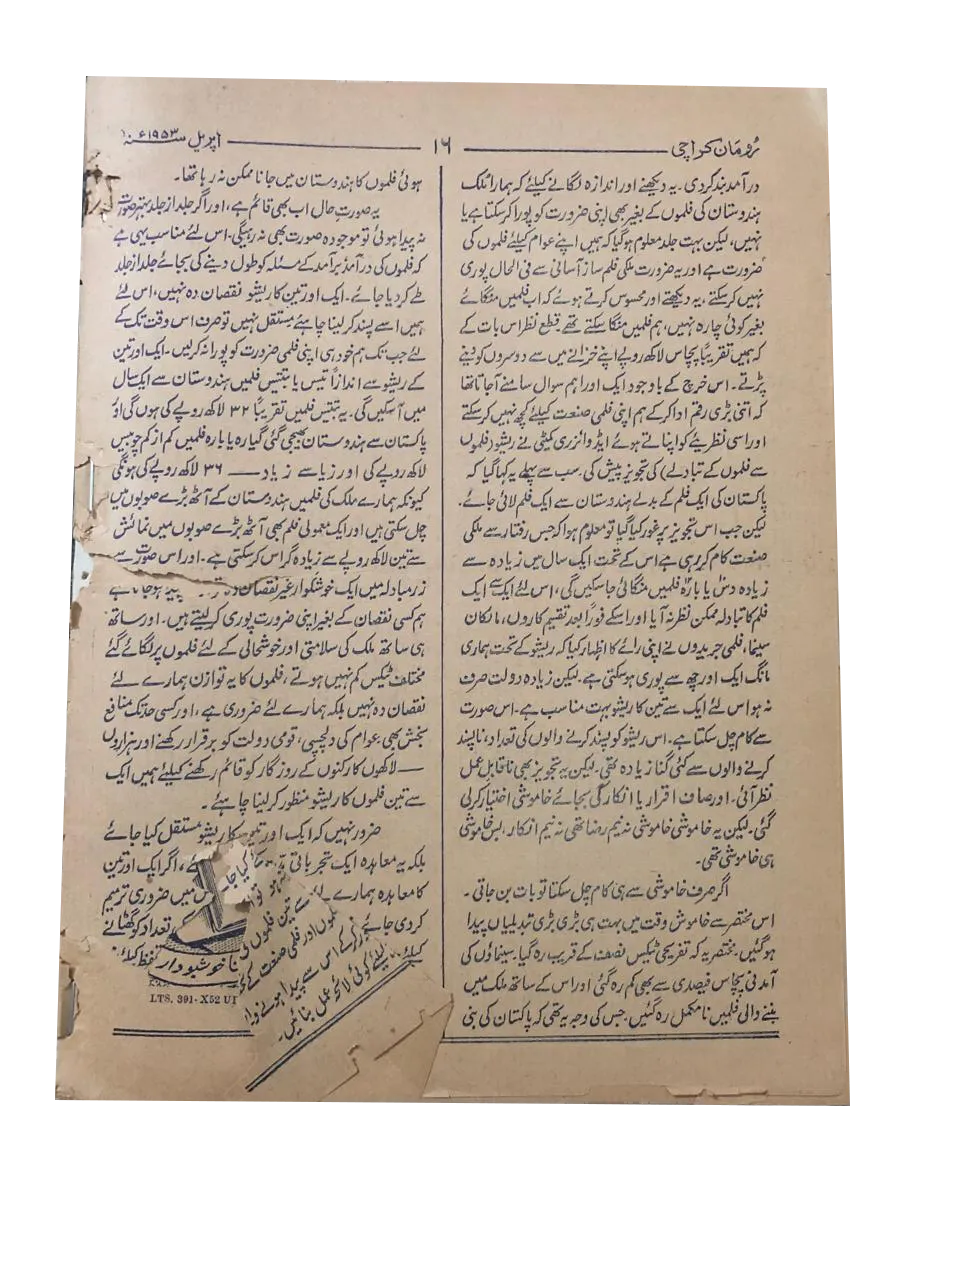 رُومان کراچی ۱۶ اپریل سنہ ۱۹۵۳ء
درآمد بند کردی۔ یہ دیکھنے اور اندازہ لگانے کیلئے کہ ہمارا ملک
ہندوستان کی فلموں کے بغیر بھی اپنی ضرورت کو پورا کر سکتا ہے یا
نہیں، لیکن بہت جلد معلوم ہوگیا کہ ہمیں اپنے عوام کیلئے فلموں کی
ضرورت ہے اور یہ ضرورت ملکی فلم ساز آسانی سے فی الحال پوری
نہیں کرسکتے، یہ دیکھتے اور محسوس کرتے ہوئے کہ اب فلمیں منگائے
بغیر کوئی چارہ نہیں، ہم فلمیں منگا سکتے تھے۔ قطع نظر اس بات کے
کہ ہمیں تقریباً پچاس لاکھ روپے اپنے خزانے میں سے دوسروں کو دینے
پڑتے۔ اس خرچ کے باوجود ایک اور اہم سوال سامنے آجاتا تھا
کہ اتنی بڑی رقم ادا کرکے ہم اپنی فلمی صنعت کیلئے کچھ نہیں کرسکتے
اور اسی نظریئے کو اپناتے ہوئے ایڈوائزری کمیٹی نے ریشو (فلموں
سے فلموں کے تبادلے) کی تجویز پیش کی۔ سب سے پہلے یہ کہا گیا کہ
پاکستان کی ایک فلم کے بدلے ہندوستان سے ایک فلم لائی جائے۔
لیکن جب اس تجویز پر غور کیا گیا تو معلوم ہوا کہ جس رفتار سے ملکی
صنعت کام کر رہی ہے اس کے تحت ایک سال میں زیادہ سے
زیادہ دس یا بارہ فلمیں منگائی جاسکیں گی، اس لئے ایک سے ایک
فلم کا تبادلہ ممکن نظر نہ آیا اور اسکے فوراً بعد تقسیم کاروں، مالکان
سینما، فلمی جریدوں نے اپنی رائے کا اظہار کیا کہ ریشو کے تحت ہماری
مانگ ایک اور چھ سے پوری ہوسکتی ہے۔ لیکن زیادہ دولت صرف
نہ ہو اس لئے ایک سے تین کا ریشو بہت مناسب ہے۔ اس صورت
سے کام چل سکتا ہے۔ اس ریشو کو پسند کرنے والوں کی تعداد، ناپسند
کرنے والوں سے کئی گنا زیادہ تھی۔ لیکن یہ تجویز بھی ناقابل عمل
نظر آئی۔ اور صاف اقرار یا انکار کی بجائے خاموشی اختیار کرلی
گئی۔ لیکن یہ خاموشی خاموشی نہ نیم رضا تھی نہ نیم انکار، بس خاموشی
ہی خاموشی تھی۔
اگر صرف خاموشی سے ہی کام چل سکتا تو بات بن جاتی۔
اس مختصر سے خاموش وقت میں بہت ہی بڑی بڑی تبدیلیاں پیدا
ہوگئیں۔ مختصر یہ کہ تفریحی ٹیکس نصف کے قریب رہ گیا۔ سینماؤں کی
آمدنی پچاس فیصدی سے بھی کم رہ گئی اور اس کے ساتھ ملک میں
بننے والی فلمیں نامکمل رہ گئیں۔ جس کی وجہ یہ تھی کہ پاکستان کی بنی
ہوئی فلموں کا ہندوستان میں جانا ممکن نہ رہا تھا۔
یہ صورتِ حال اب بھی قائم ہے، اور اگر جلد از جلد بہتر صورت
نہ پیدا ہوئی تو موجودہ صورت بھی نہ رہیگی۔ اس لئے مناسب یہی ہے
کہ فلموں کی درآمد برآمد کے مسئلہ کو طول دینے کی بجائے جلد از جلد
طے کر دیا جائے۔ ایک اور تین کا ریشو نقصان دہ نہیں، اس لئے
ہمیں اسے پسند کر لینا چاہئے مستقل نہیں تو صرف اس وقت تک کے
لئے جب تک ہم خود ہی اپنی فلمی ضرورت کو پورا نہ کرلیں۔ ایک اور تین
کے ریشو سے اندازاً تیس یا تینتیس فلمیں ہندوستان سے ایک سال
میں آسکیں گی۔ یہ تینتیس فلمیں تقریباً ۳۲ لاکھ روپے کی ہوں گی اور
پاکستان سے ہندوستان بھیجی گئی گیارہ یا بارہ فلمیں کم از کم چوبیس
لاکھ روپے کی اور زیاسے زیاد — ۳۶ لاکھ روپے کی ہونگی
کیونکہ ہمارے ملک کی فلمیں ہندوستان کے آٹھ بڑے صوبوں میں
چل سکتی ہیں اور ایک معمولی فلم بھی آٹھ بڑے صوبوں میں نمائش
سے تین لاکھ روپے سے زیادہ گراس کرسکتی ہے۔ اور اس صورت سے
زر مبادلہ میں ایک خوشگوار غیر نقصان ہے
ہم کسی نقصان کے بغیر اپنی ضرورت پوری کر لیتے ہیں۔ اور ساتھ
ہی ساتھ ملک کی سلامتی اور خوشحالی کے لئے فلموں پر لگائے گئے
مختلف ٹیکس کم نہیں ہوتے، فلموں کا یہ توازن ہمارے لئے
نقصان دہ نہیں بلکہ ہمارے لئے ضروری ہے، اور کسی حد تک منافع
بخش بھی۔ عوام کی دلچسپی، قومی دولت کو برقرار رکھنے اور ہزاروں
— لاکھوں کارکنوں کے روزگار کو قائم رکھنے کیلئے ہمیں ایک
سے تین فلموں کا ریشو منظور کرلینا چاہئے۔
ضرور نہیں کہ ایک اور تین کا ریشو مستقل کیا جائے
بلکہ یہ معاہدہ ایک تجرباتی کیا جائے، اگر ایک اور تین
کا معاہدہ ہمارے میں ضروری ترمیم
کردی جائے تعداد کو گھٹانے
کیلئے
تین فلموں کی
فلموں اور فلمی صنعت کے
کے اس سے پیدا ہونے
کیلئے کوئی لائحہ عمل بنائیں۔
ناخوشبودار
LTS. 391-X52 UI